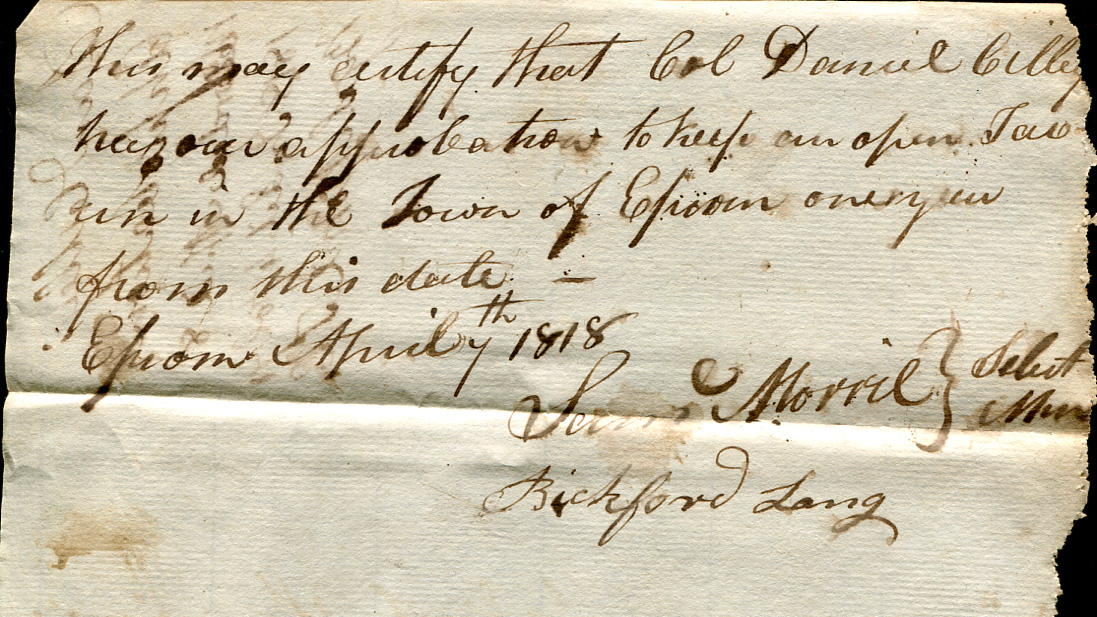 This may certify that Col Daniel Cilley
has our approbation to keep an open Tav
ern in the Town of Epsom one year
from this date —
Epsom April 7th 1818
Sam.l Morril } Select
Men
Bickford Lang